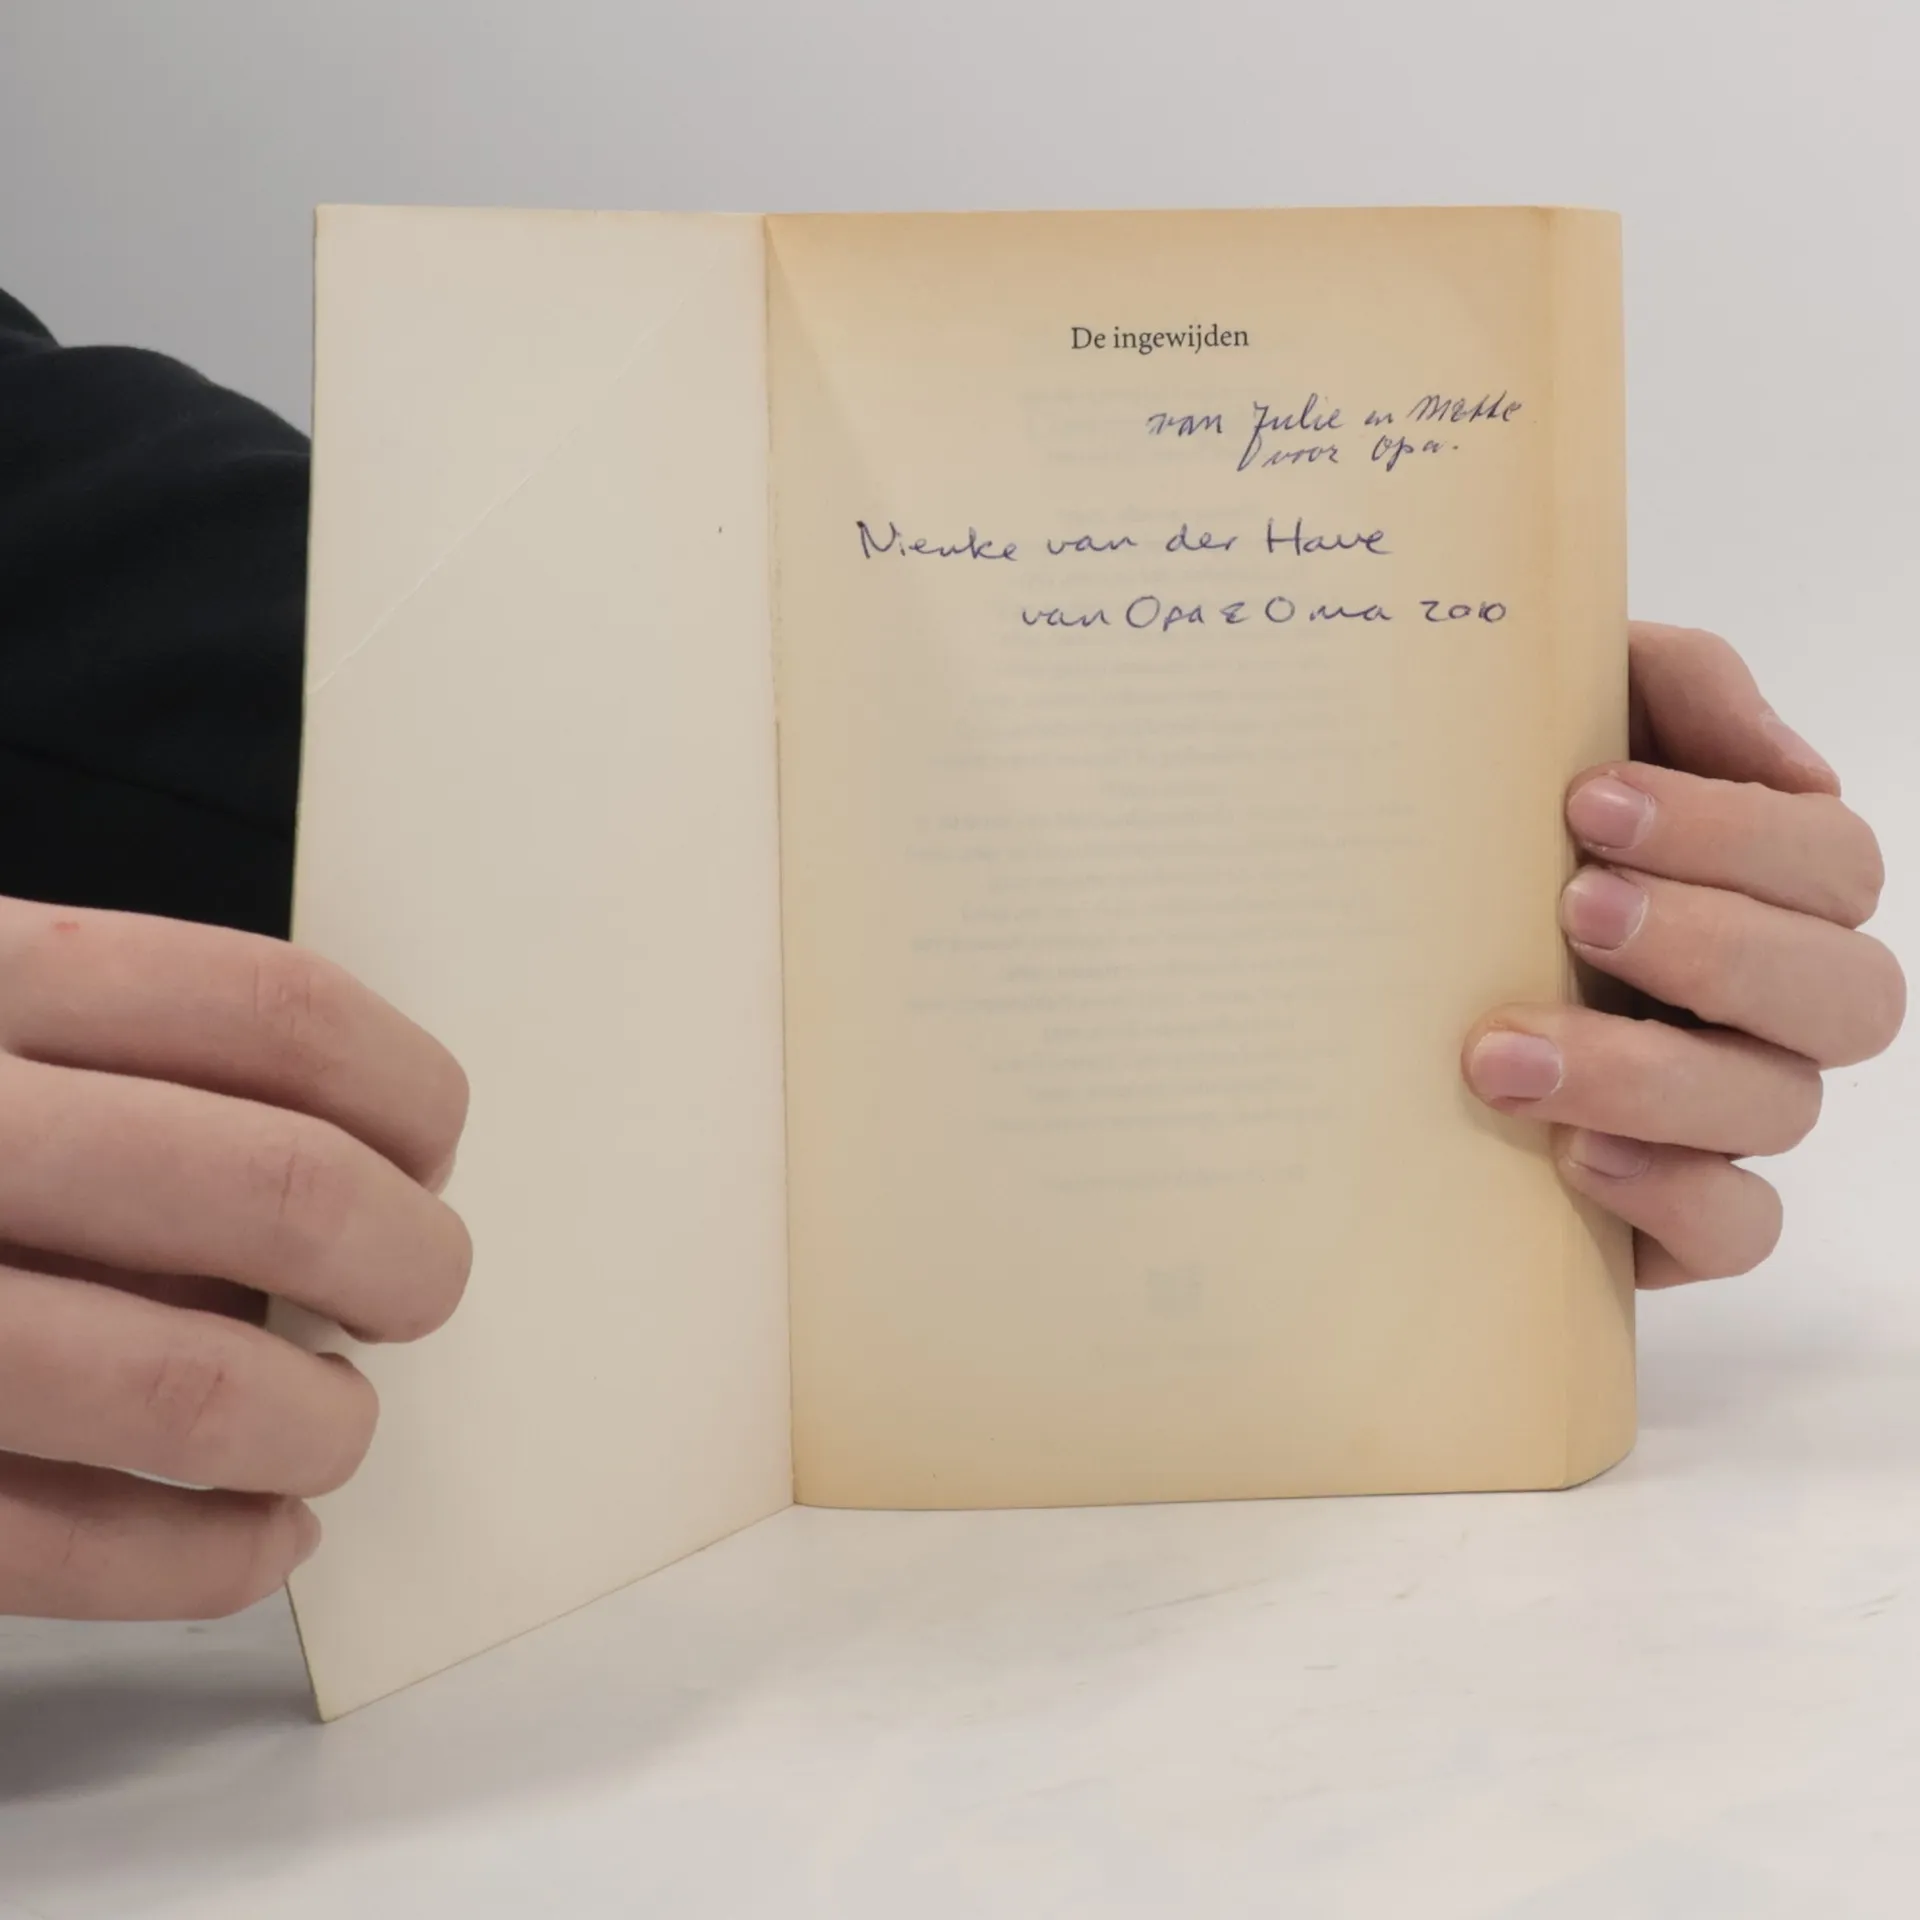 De ingewijden
van Julie en Mette
voor Opa.
Nienke van der Have
van Opa & Oma 2010